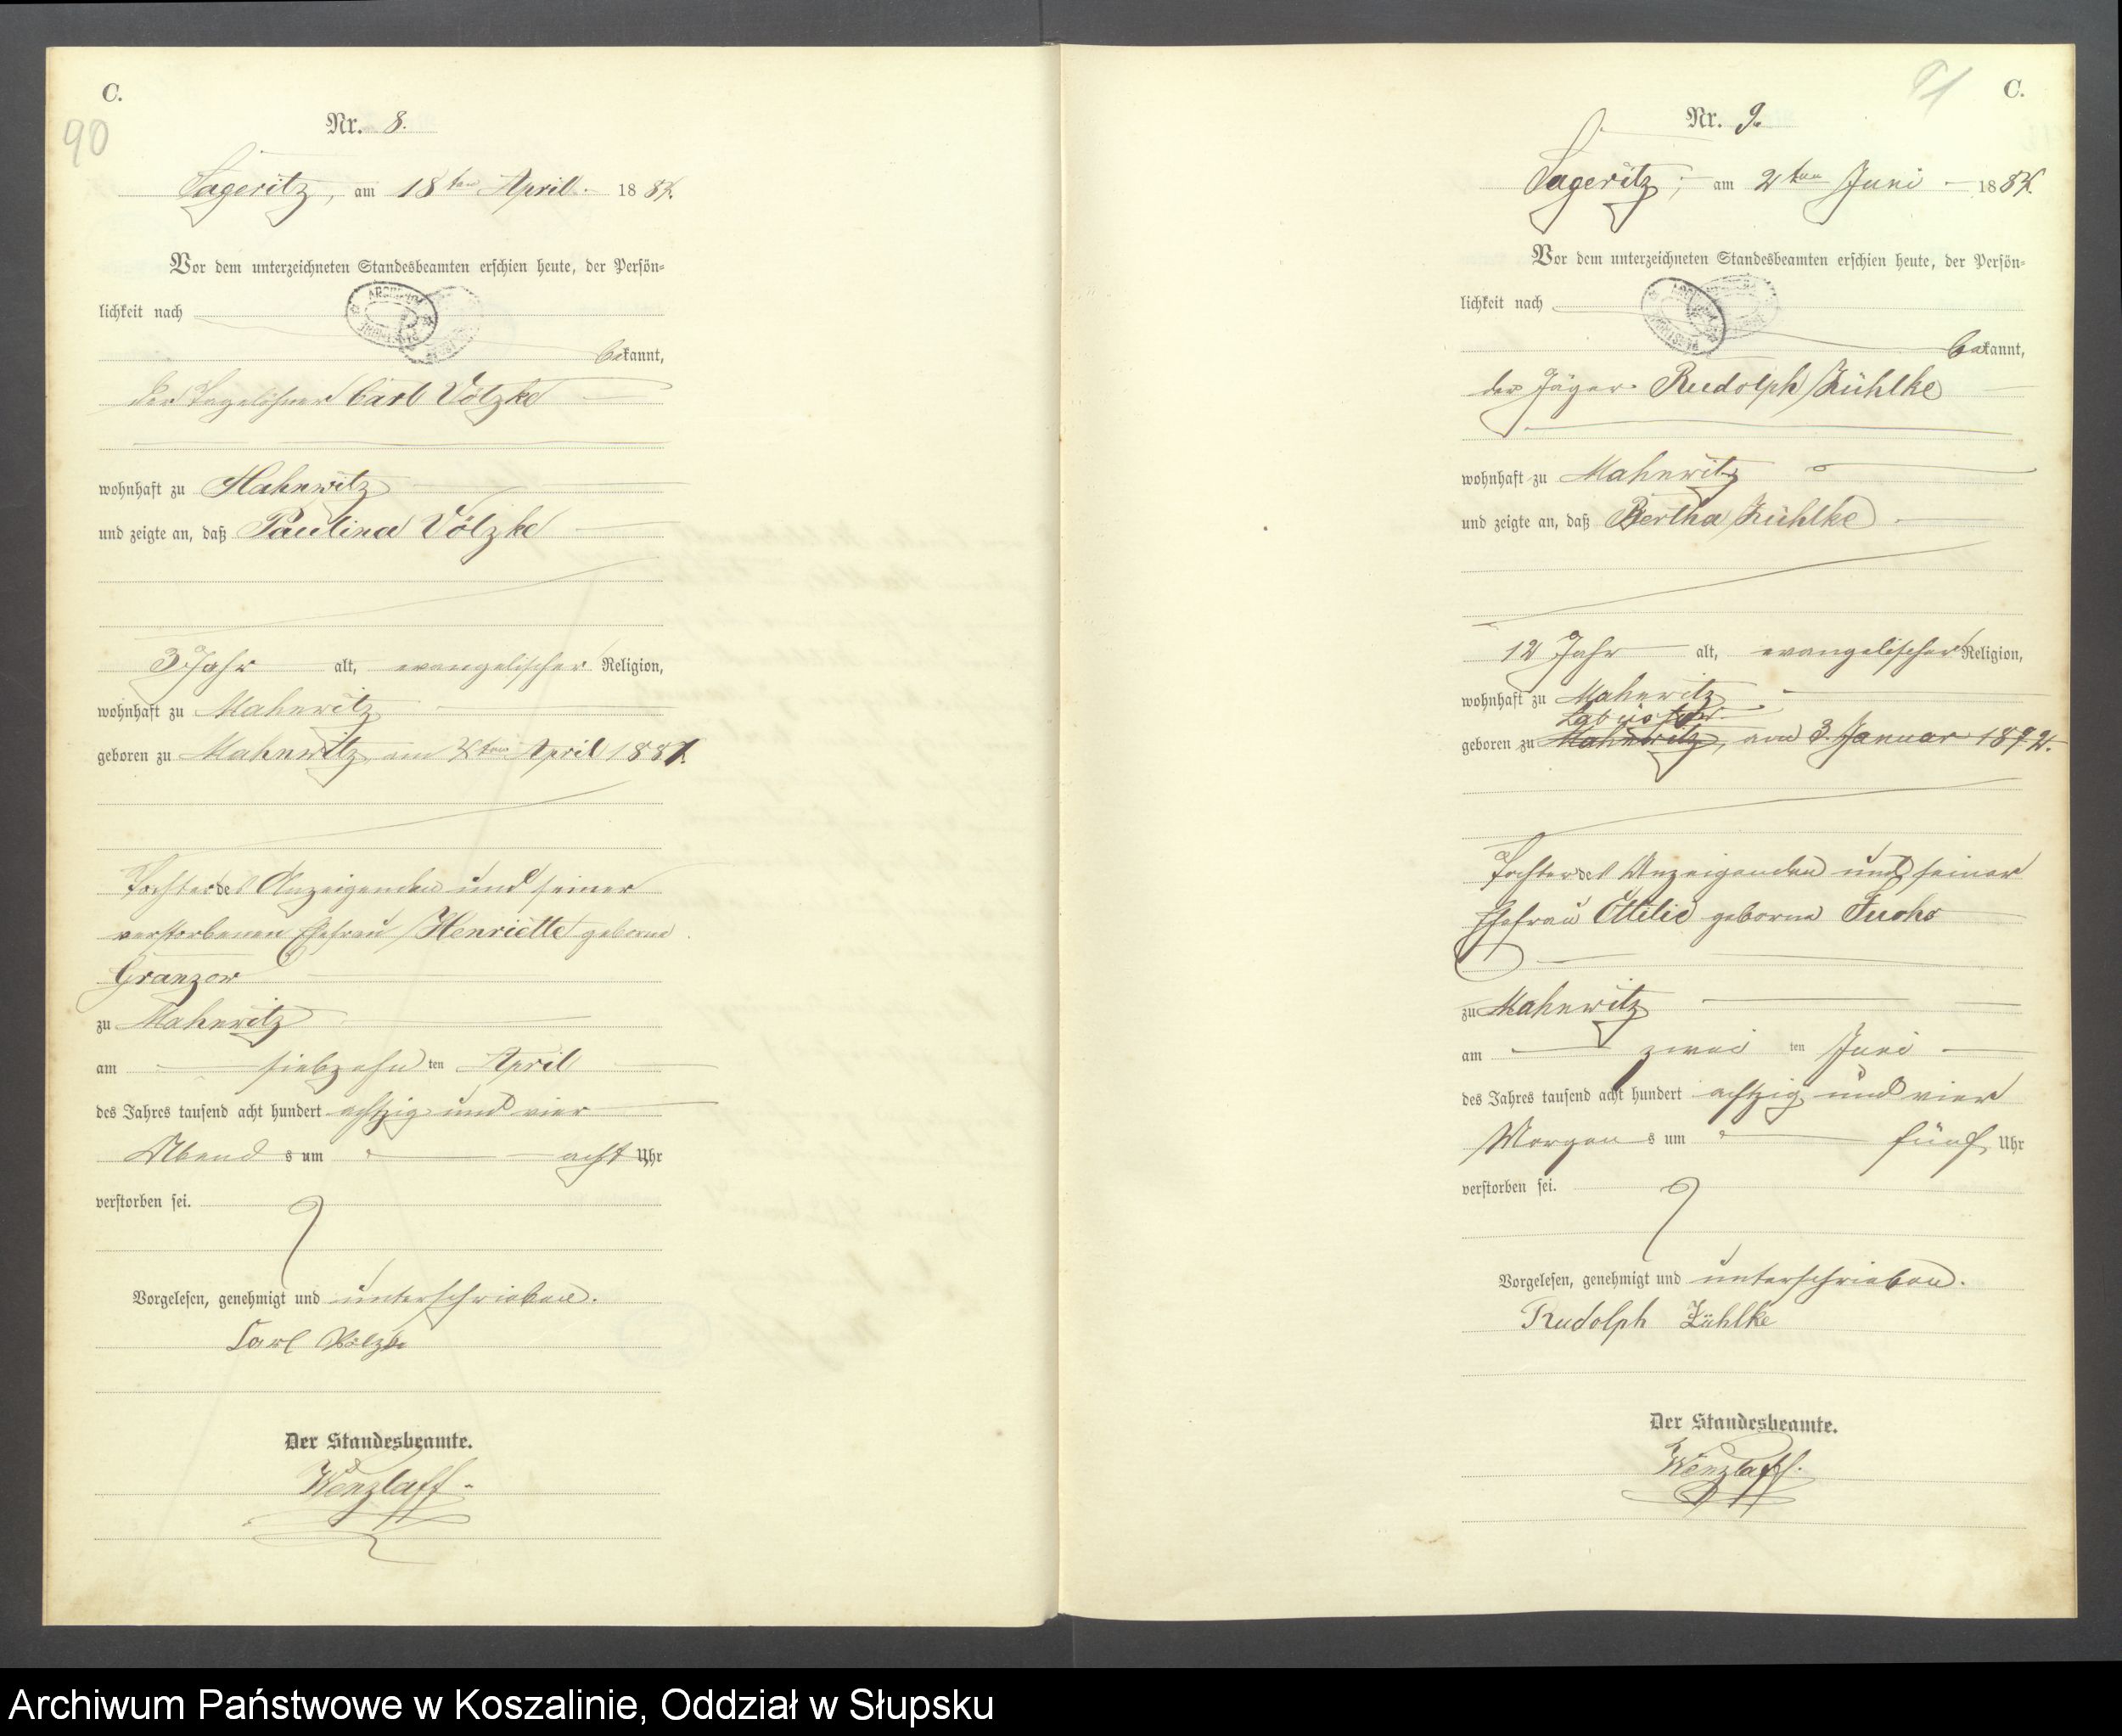 C.
90
Nr. 8.
Sageritz, am 18ten April. 1884.
Vor dem unterzeichneten Standesbeamten erschien heute, der Persön-
lichkeit nach
bekannt,
der Tagelöhner Carl Völzke
wohnhaft zu Mahnwitz
und zeigte an, daß Paulina Völzke
3 Jahr alt, evangelischer Religion,
wohnhaft zu Mahnwitz
geboren zu Mahnwitz, am April 1881.
Tochter des Anzeigenden und seiner
verstorbenen Ehefrau Henriette geborne
Granzow
zu Mahnwitz
am siebzehn ten April
des Jahres tausend acht hundert achtzig und vier
Abend s um acht Uhr
verstorben sei.
Vorgelesen, genehmigt und unterschrieben.
Carl Völzke
Der Standesbeamte.
Wenzlaff.
91
C.
Nr. 9.
Sageritz, am 2ten Juni 1884.
Vor dem unterzeichneten Standesbeamten erschien heute, der Persön-
lichkeit nach
bekannt,
der Jäger Rudolph Zühlke
wohnhaft zu Mahnwitz
und zeigte an, daß Bertha Zühlke
12 Jahr alt, evangelischer Religion,
wohnhaft zu Mahnwitz
geboren zu Mahnwitz, am 3. Januar 1872.
Tochter des Anzeigenden und seiner
Ehefrau Ottilie geborne Fuchs
zu Mahnwitz
am zwei ten Juni
des Jahres tausend acht hundert achtzig und vier
Morgen s um fünf Uhr
verstorben sei.
Vorgelesen, genehmigt und unterschrieben.
Rudolph Zühlke
Der Standesbeamte.
Wenzlaff.
Archiwum Państwowe w Koszalinie, Oddział w Słupsku